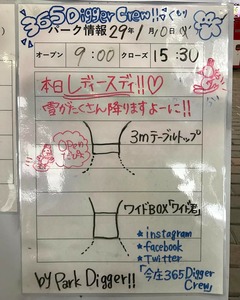 365 Digger Crew!! くもり
パーク情報 29年1月10日
オープン 9:00 クローズ 15:30
本日レディースディ!!♡
雪がたくさん降りますよーに!!
OPEN
3mテーブルトップ
ワイドBOX「ワイド君」
*instagram
*facebook
*Twitter
「今庄365Digger
Crew」
by Park Digger!!